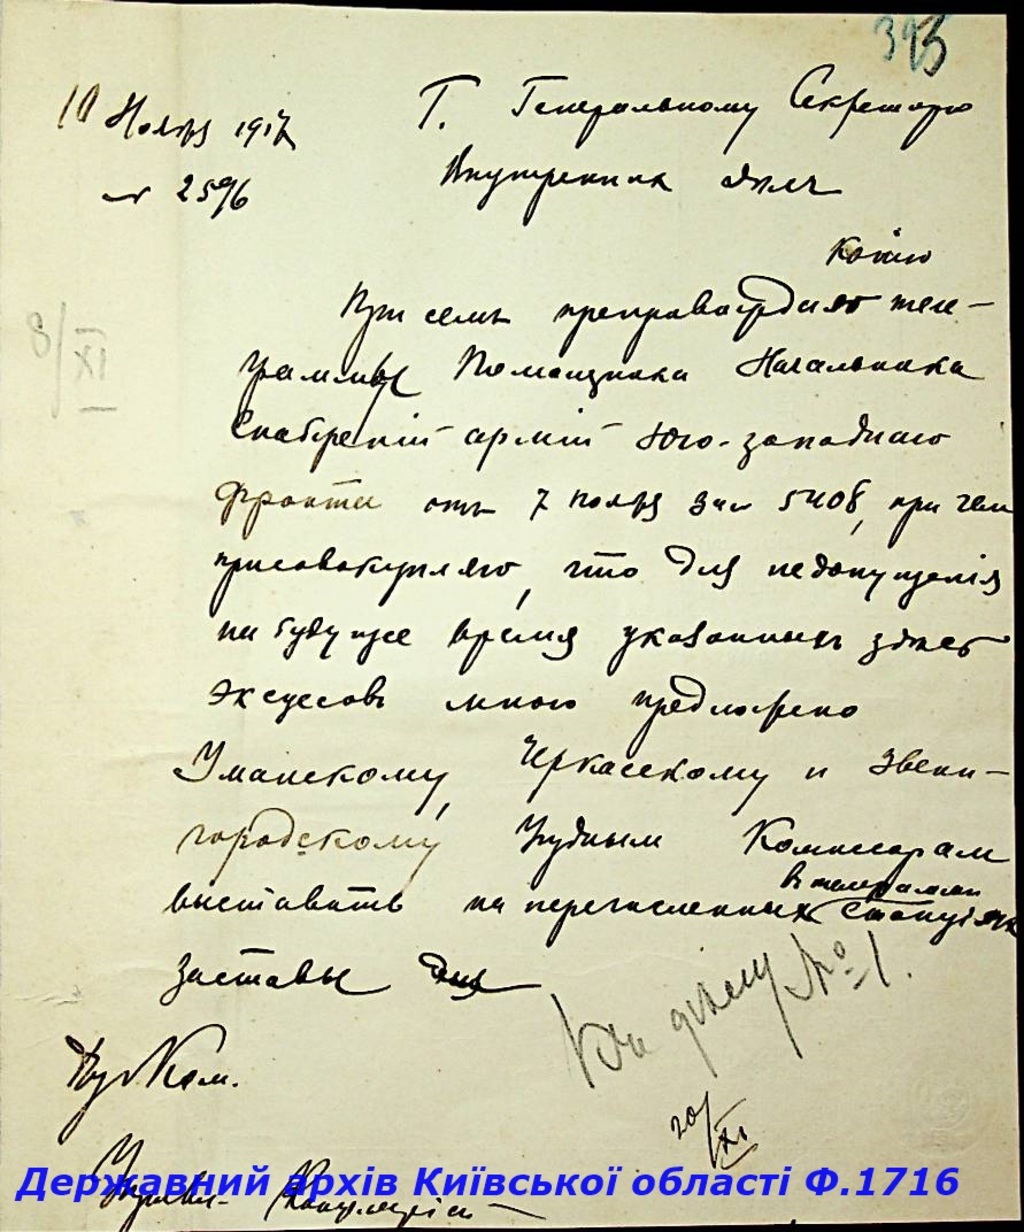 393
10 Ноября 1917
№ 2596
Г. Генеральному Секретарю
Внутренних дѣлъ
копію
При семъ препровождаю теле-
граммы Помощника Начальника
Снабженій армій Юго-западнаго
фронта отъ 7 ноября за № 5408, при чем
присовокупляю, что для недопущенія
на будущее время указанныхъ здѣсь
эксцессовъ мною предложено
Уманскому, Черкасскому и Звени-
городскому Уѣзднымъ Комиссарам
выставить на перечисленных в телеграмме станціях
заставы для
8/XI
Къ дѣлу № 1.
20/XI
Губ Ком.
Управл. Канцеляріей
Державний архів Київської області Ф.1716